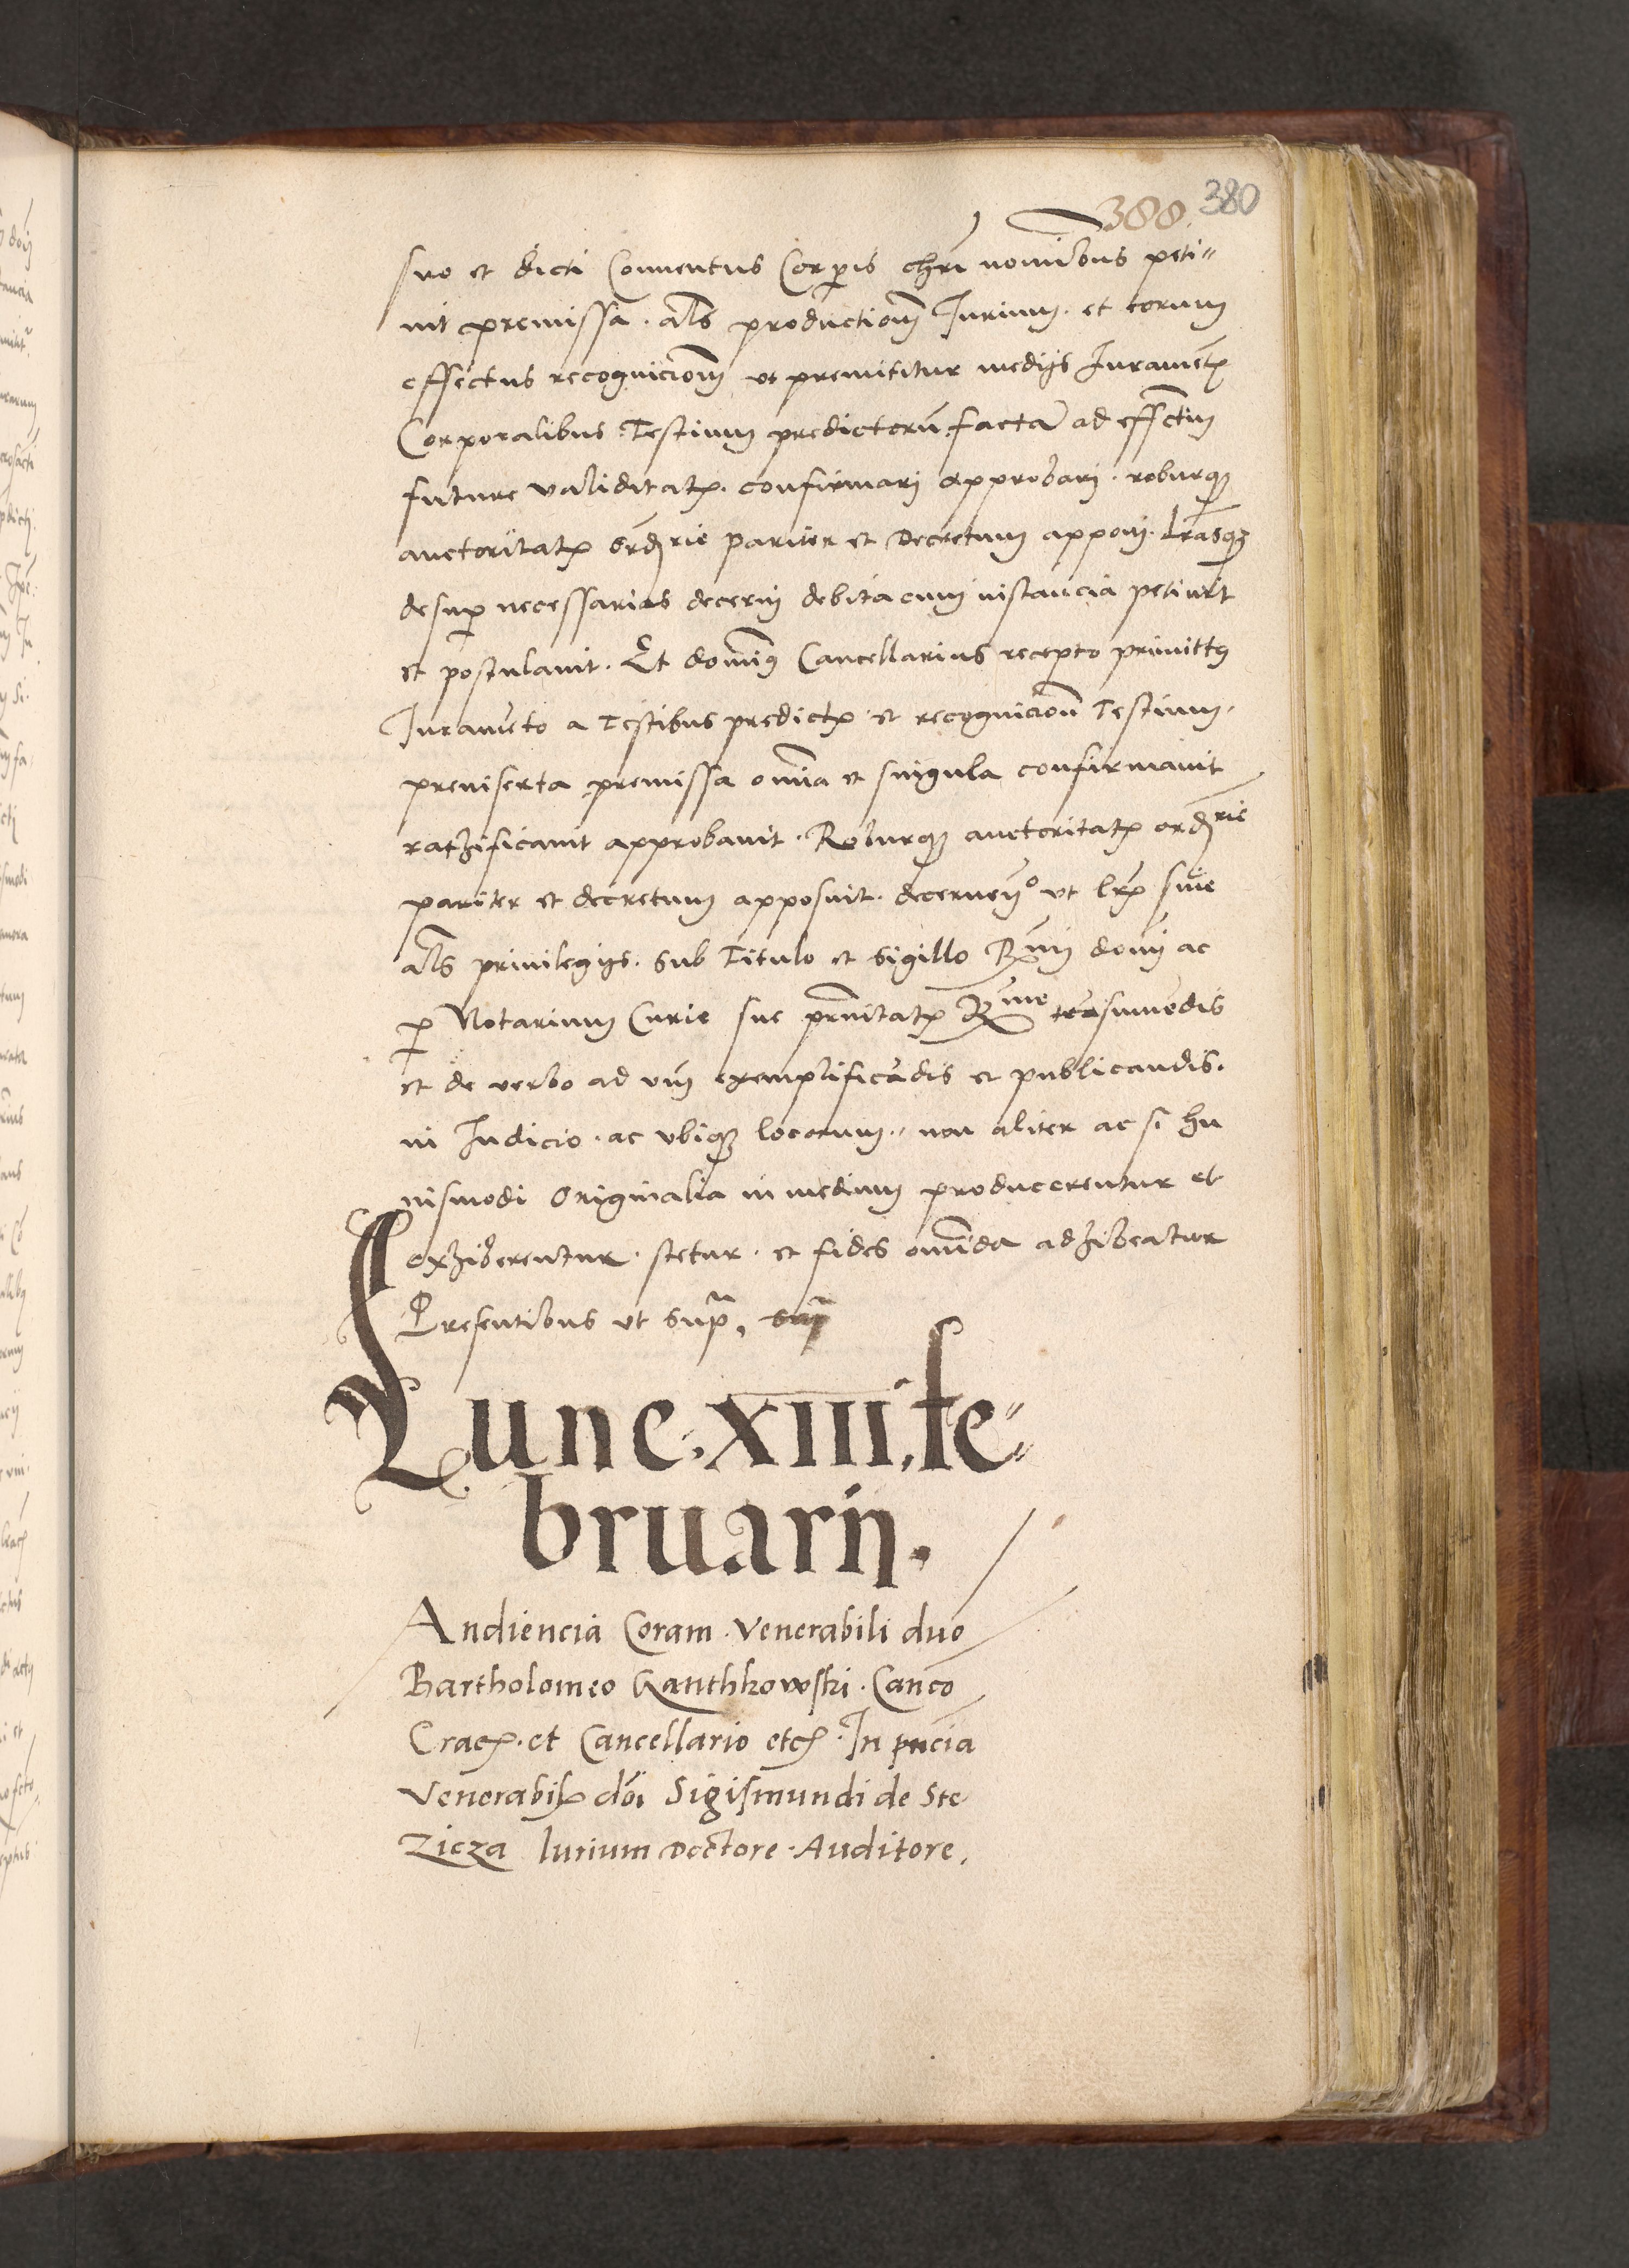 388. 380
suo et dicti Conuentus Corpis chri nominibus peti=
uit premissa. als productionem Jurium. et eorum
effectus recognicionem ut premittitur medijs Jurament
Corporalibus Testium predictorum facta ad effectum
future validitat. confirmari approbari. roburque
auctoritat ordrie pariter et Decretum apponi. Lrasque
desuper necessarias decerni debita cum instancia petiuit
et postulauit. Et dominus Cancellarius recepto primittus
Juramento a Testibus predict et recognicione Testium.
preinserta premissa omnia et singula confirmauit
rathificauit approbauit. Roburque auctoritat ordrie
pariter et decretum apposuit. decernendo ut lris siue
als priuilegijs. sub Titulo et sigillo Rmi domi ac
p Notarium Curie sue Rme transsumendis
et de verbo ad vm exemplificandis et publicandis.
in Judicio. ac vbique locorum. non aliter ac si hu
iusmodi Originalia in medium producerentur et
exhiberentur. stetur. et fides omnimoda adhibeatur
Presentibus ut supra,
Lune. xiii. fe=
bruarij.
Audiencia Coram. Venerabili dno
Bartholomeo Ganthkowski. Canco
Crac. et Cancellario etc. In pncia
Venerabil doi Sigismundi de Ste
Zicza Iurium Doctore. Auditore,